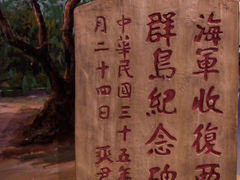 海軍收復西
群島紀念碑
中華民國三十五年
月二十四日 張君